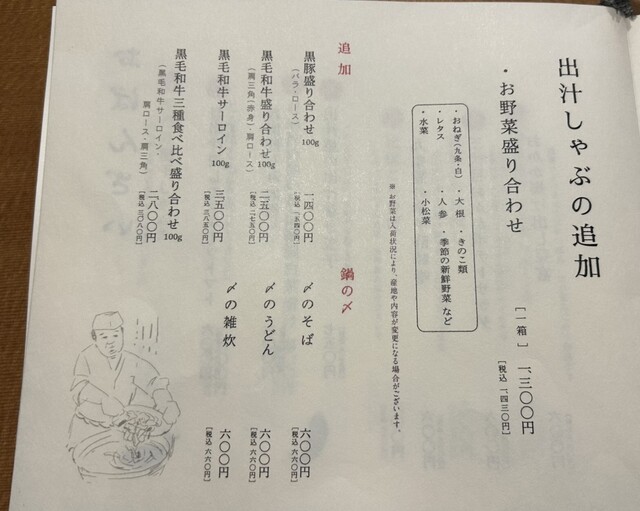 出汁しゃぶの追加
・お野菜盛り合わせ
[一箱] 一、三〇〇円
[税込 一、四三〇円]
・おねぎ(九条・白) ・大根 ・きのこ類
・レタス ・人参 ・季節の新鮮野菜 など
・水菜 ・小松菜
※お野菜は入荷状況により、産地や内容が変更になる場合がございます。
追加
黒豚盛り合わせ 100g 一四〇〇円
(バラ・ロース) [税込 一五四〇円]
黒毛和牛盛り合わせ 100g 二五〇〇円
(肩三角(赤身)、肩ロース) [税込 二七五〇円]
黒毛和牛サーロイン 100g 三五〇〇円
[税込 三八五〇円]
黒毛和牛三種食べ比べ盛り合わせ 100g 二八〇〇円
(黒毛和牛サーロイン・
肩ロース・肩三角) [税込 三〇八〇円]
鍋の〆
〆のそば 六〇〇円
[税込 六六〇円]
〆のうどん 六〇〇円
[税込 六六〇円]
〆の雑炊 六〇〇円
[税込 六六〇円]